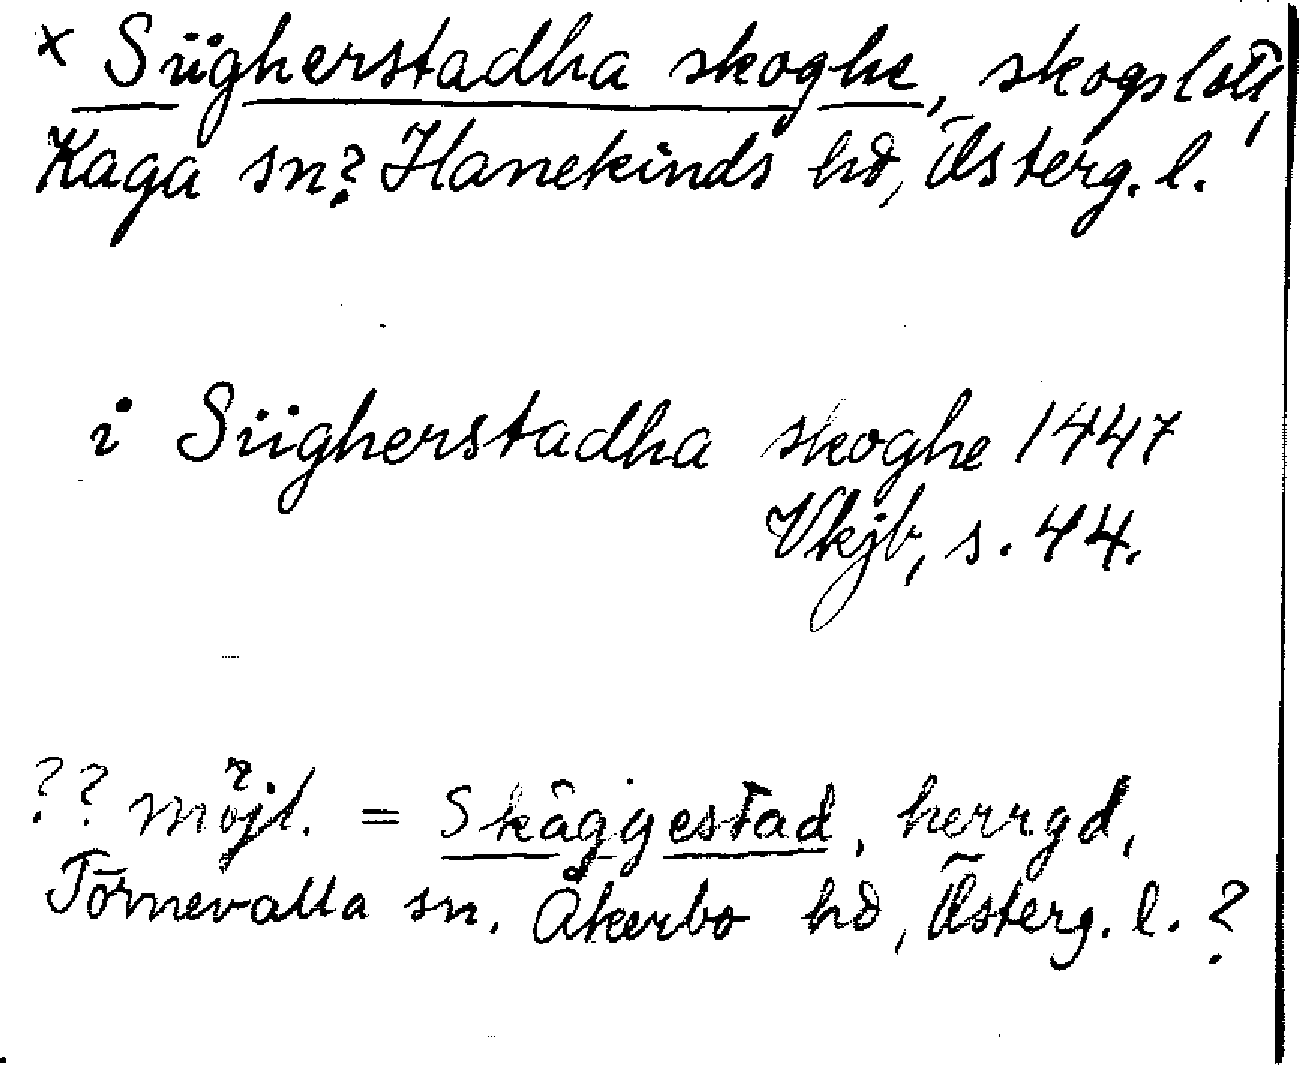 x Siigherstadha skoghe, skogslott,
Kaga sn? Hanekinds hd, Österg. l.
i Siigherstadha skoghe 1447
Vkjb, s. 44.
?? möjl. = Skäggestad, herrgd,
Törnevalla sn. Åkerbo hd, Österg. l. ?